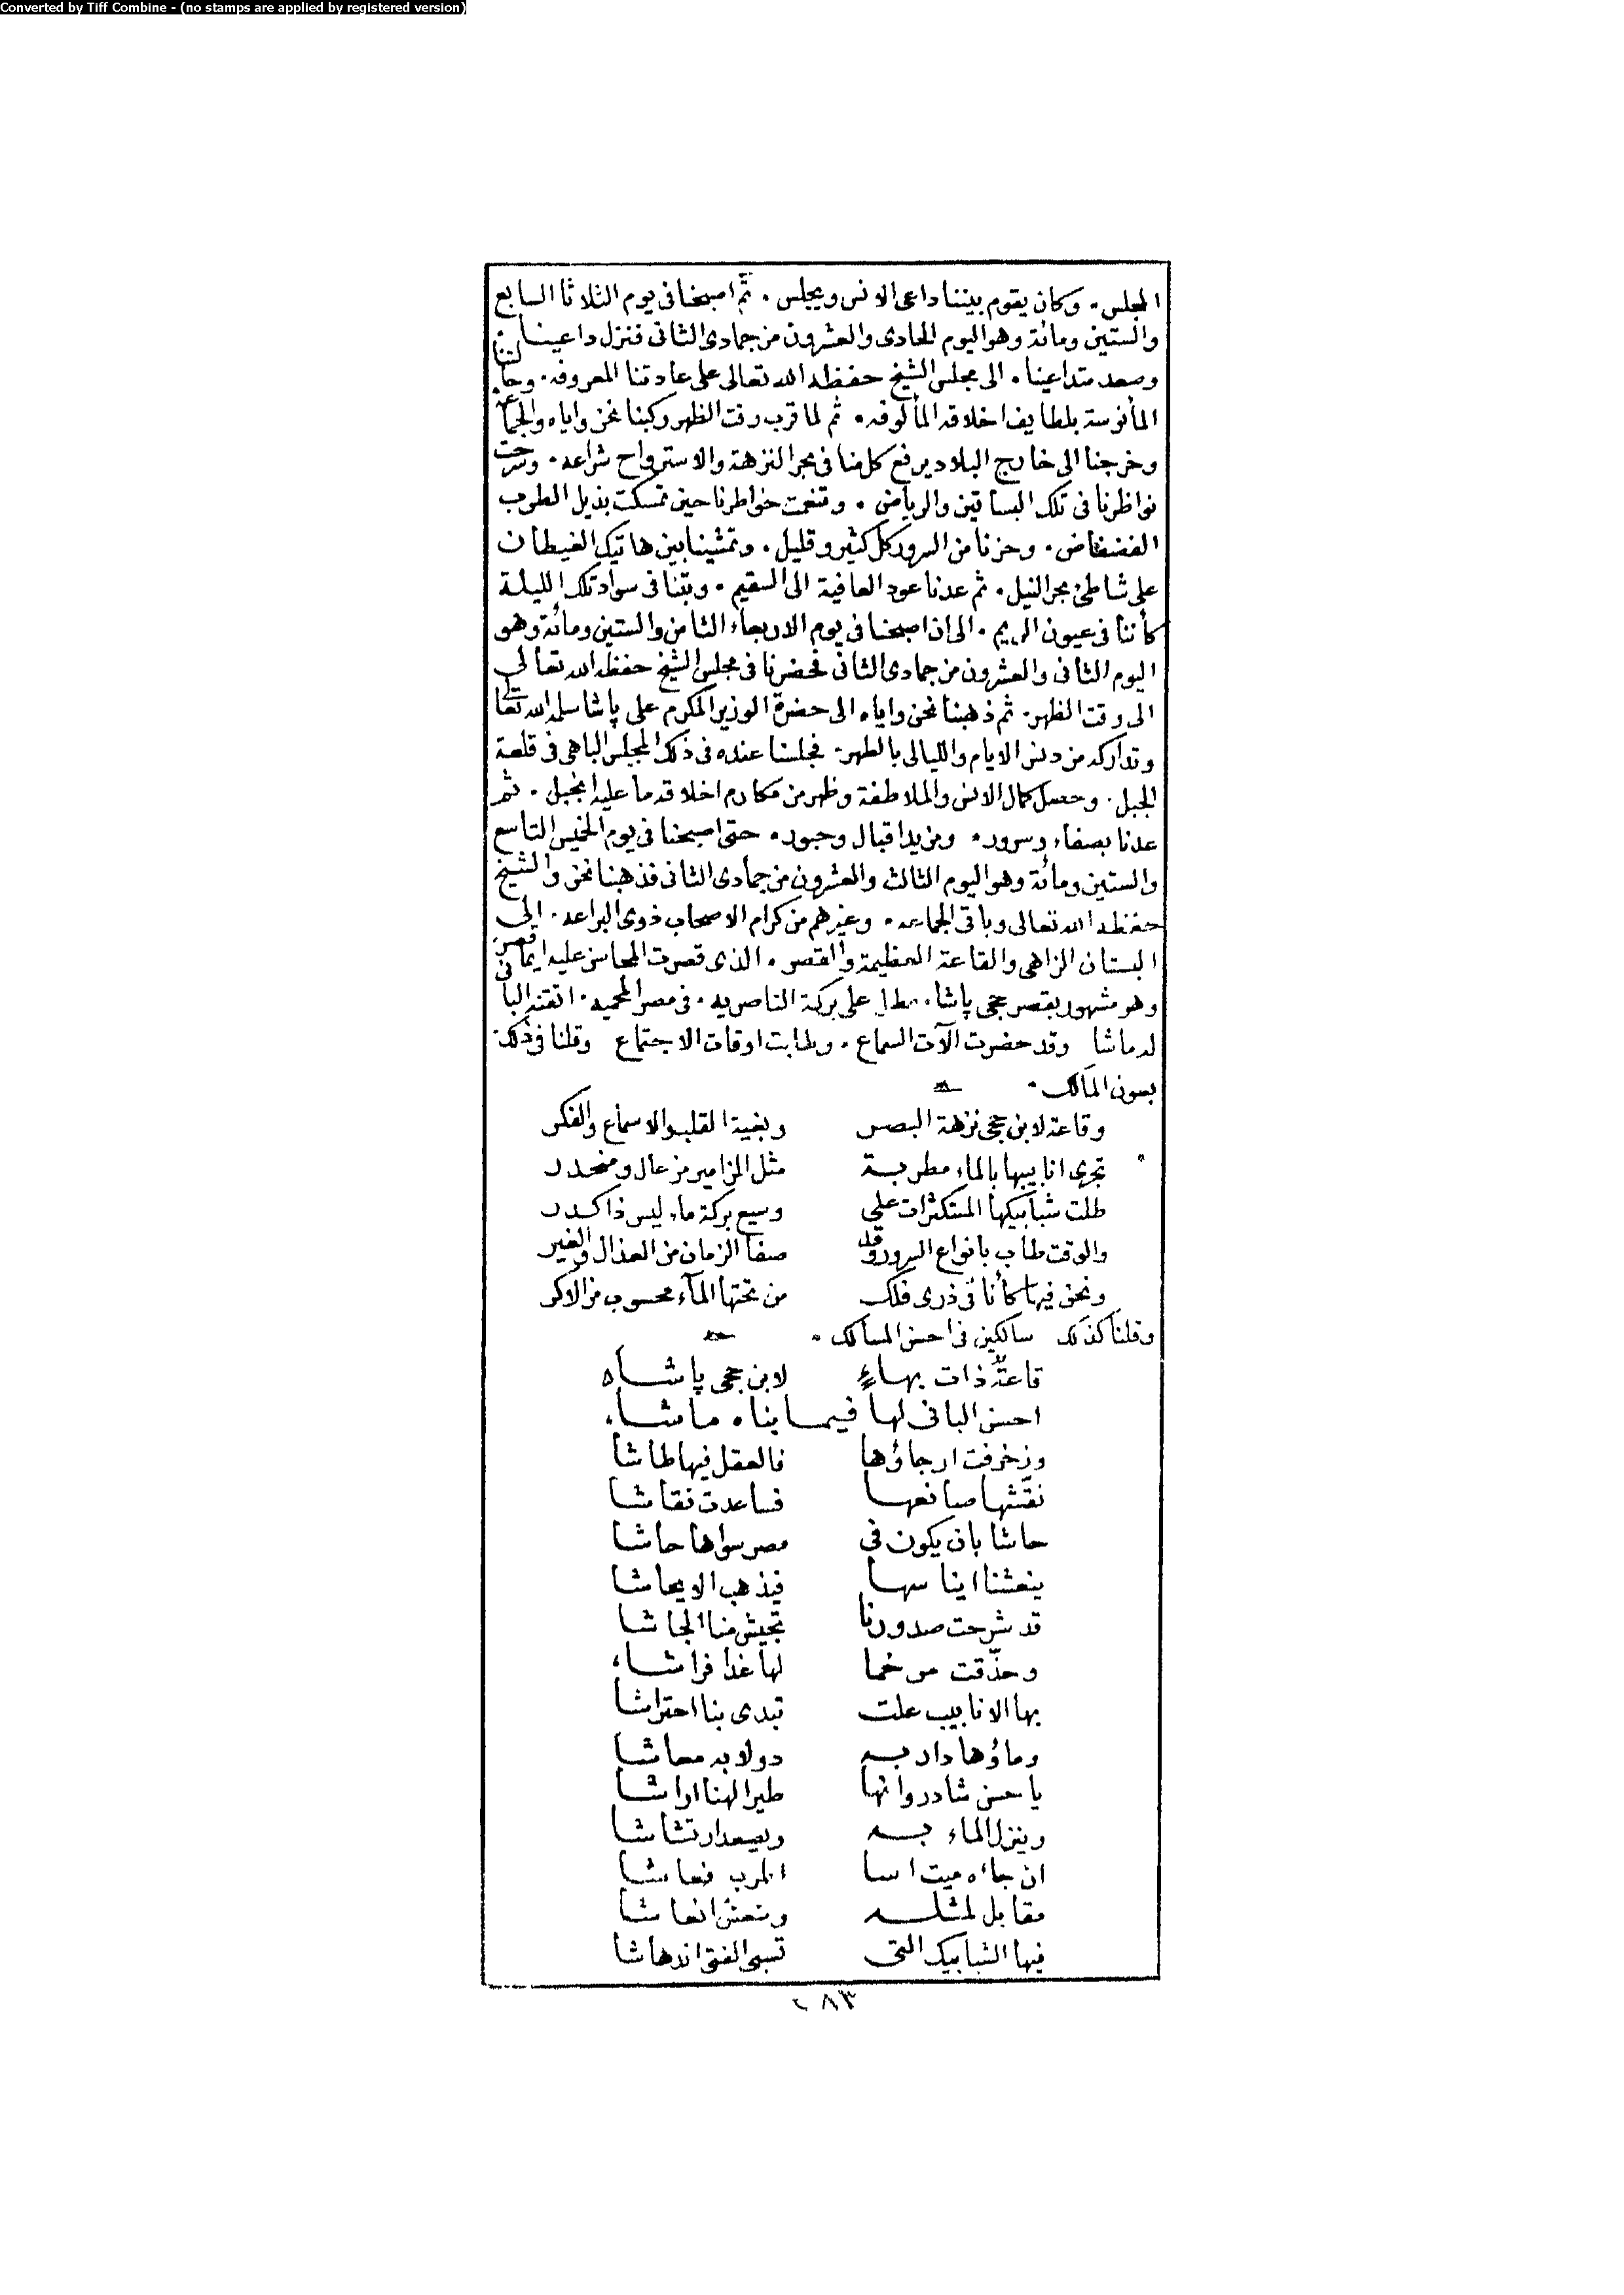 Converted by Tiff Combine - (no stamps are applied by registered version)
المجلس. وكان يقوم بيننا داعى الانس ويجلس. ثم اصبحنا فى يوم الثلاثا السابع
والستين ومائة وهو اليوم الحادى والعشرون من جمادى الثانى فنزل داعينا
وصعد متداعينا. الى مجلس الشيخ حفظه الله تعالى على عادتنا المعروفه. وجلستنا
المأنوسة بلطايف اخلاقه المألوفه. ثم لما قرب وقت الظهر ركبنا نحن واياه والجماعة
وخرجنا الى خارج البلاد يرفع كل منا فى بحر النزهة والاسترواح شراعه. وسرحت
نواظرنا فى تلك البساتين والرياض. وتنعمت خواطرنا حين تمسكت بذيل الطرب
الفضفاض. وحزنا من السرور كل كثير وقليل. وتمشينا بين هاتيك الغيطان
على شاطئ بحر النيل. ثم عدنا عود العافية الى السقيم. وبتنا فى سواد تلك الليلة
كأننا فى عيون الريم. الى ان اصبحنا فى يوم الاربعاء الثامن والستين ومائة وهو
اليوم الثانى والعشرون من جمادى الثانى فحضرنا فى مجلس الشيخ حفظه الله تعالى
الى وقت الظهر. ثم ذهبنا نحن واياه الى حضرة الوزير المكرم على پاشا سلمه الله تعالى
وتداركه من دنس الايام والليالى بالطهر. فجلسنا عنده فى ذلك المجلس الباهى فى قلعة
الجبل. وحصل كمال الانس والملاطفة وظهر من مكارم اخلاقه ما عليه انجبل. ثم
عدنا بصفاء وسرور. ومزيد اقبال وحبور. حتى اصبحنا فى يوم الخميس التاسع
والستين ومائة وهو اليوم الثالث والعشرون من جمادى الثانى فذهبنا نحن والشيخ
حفظه الله تعالى وباقى الجماعه. وغيرهم من كرام الاصحاب ذوى البراعه. الى
البستان الزاهى والقاعة العظيمة والقصر. الذى قصرت المحاسن عليه ايما قصر
وهو مشهور بقصر حجى پاشا. مطل على بركة الناصريه. فى مصر المحميه. اتقنه البانى
له ماشا وقد حضرت الآت السماع. وطابت اوقات الاجتماع وقلنا فى ذلك
بعون المالك.
وقاعة لابن حجى نزهة البصر وبغية القلب والاسماع والفكر
تجرى انابيبها بالماء مطربة مثل المزامير من عال ومنحدر
طلت شبابيكها المستكثرات على وسيع بركة ماء ليس ذا كدر
والوقت طاب بانواع السرور وقد صفا الزمان من العذال والغير
ونحن فيها كأنا فى ذرى فلك من تحتها المآء محسوب من الاكر
وقلنا كذلك سالكين فى احسن المسالك.
قاعة ذات بهاءٍ لابن حجى پاشاه
احسن البانى لها فيما بناه ماشاء
وزخرفت ارجاؤها فالعقل فيها طاشا
نقّشها صانعها فساعدت نقاشا
حاشا بان يكون فى مصر سواها حاشا
ينعشنا ايناسها فيذهب الايحاشا
قد شرحت صدورنا تجيش منا الجاشا
وحدّقت مرخما لها غدا فراشاء
بها الانابيب علت تبدى بنا احتراشا
وماؤها دار به دولابه معاشا
ياحسن شادروانها طير الهنا اراشا
وينزل الماء به ويصعد ارتشاشا
ان جاءه ميت اسا فعاشا
مقابل لمثله وينعش انعاشا
فيها الشبابيك التى تسبى الفتى اندهاشا
٢٨٣